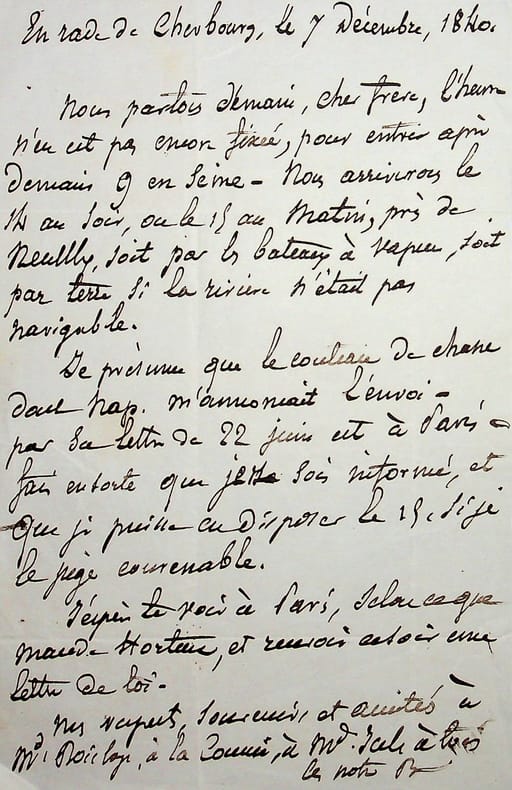 En rade de Cherbourg, le 7 Décembre, 1840.
Nous partons demain, cher frere, l'heure
n'en est pas encore fixée, pour entrer après
demain 9 en Seine - Nous arriverons le
14 au Soir, ou le 15 au Matin, près de
Neuilly, soit par les bateaux à vapeur, soit
par terre si la rivière n'était pas
navigable.
Je présume que le couteau de chasse
dont Nap. m'annonçait l'envoi -
par sa lettre de 22 juin est à Paris -
fais en sorte que je sois informé, et
que je puisse en disposer le 15, si je
le juge convenable.
J'espère te voir à Paris, selon ce que
mande Hortense, et recevoir ce soir une
lettre de toi -
Mes respects, souvenirs et amitiés à
Md. , à la , à Md. à tous
les notre